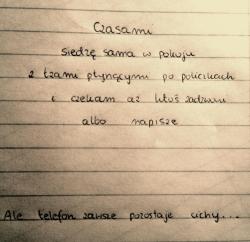 Czasami
siedzę sama w pokoju
z łzami płynącymi po policzkach
i czekam aż ktoś zadzwoni
albo napisze
Ale telefon zawsze pozostaje cichy...